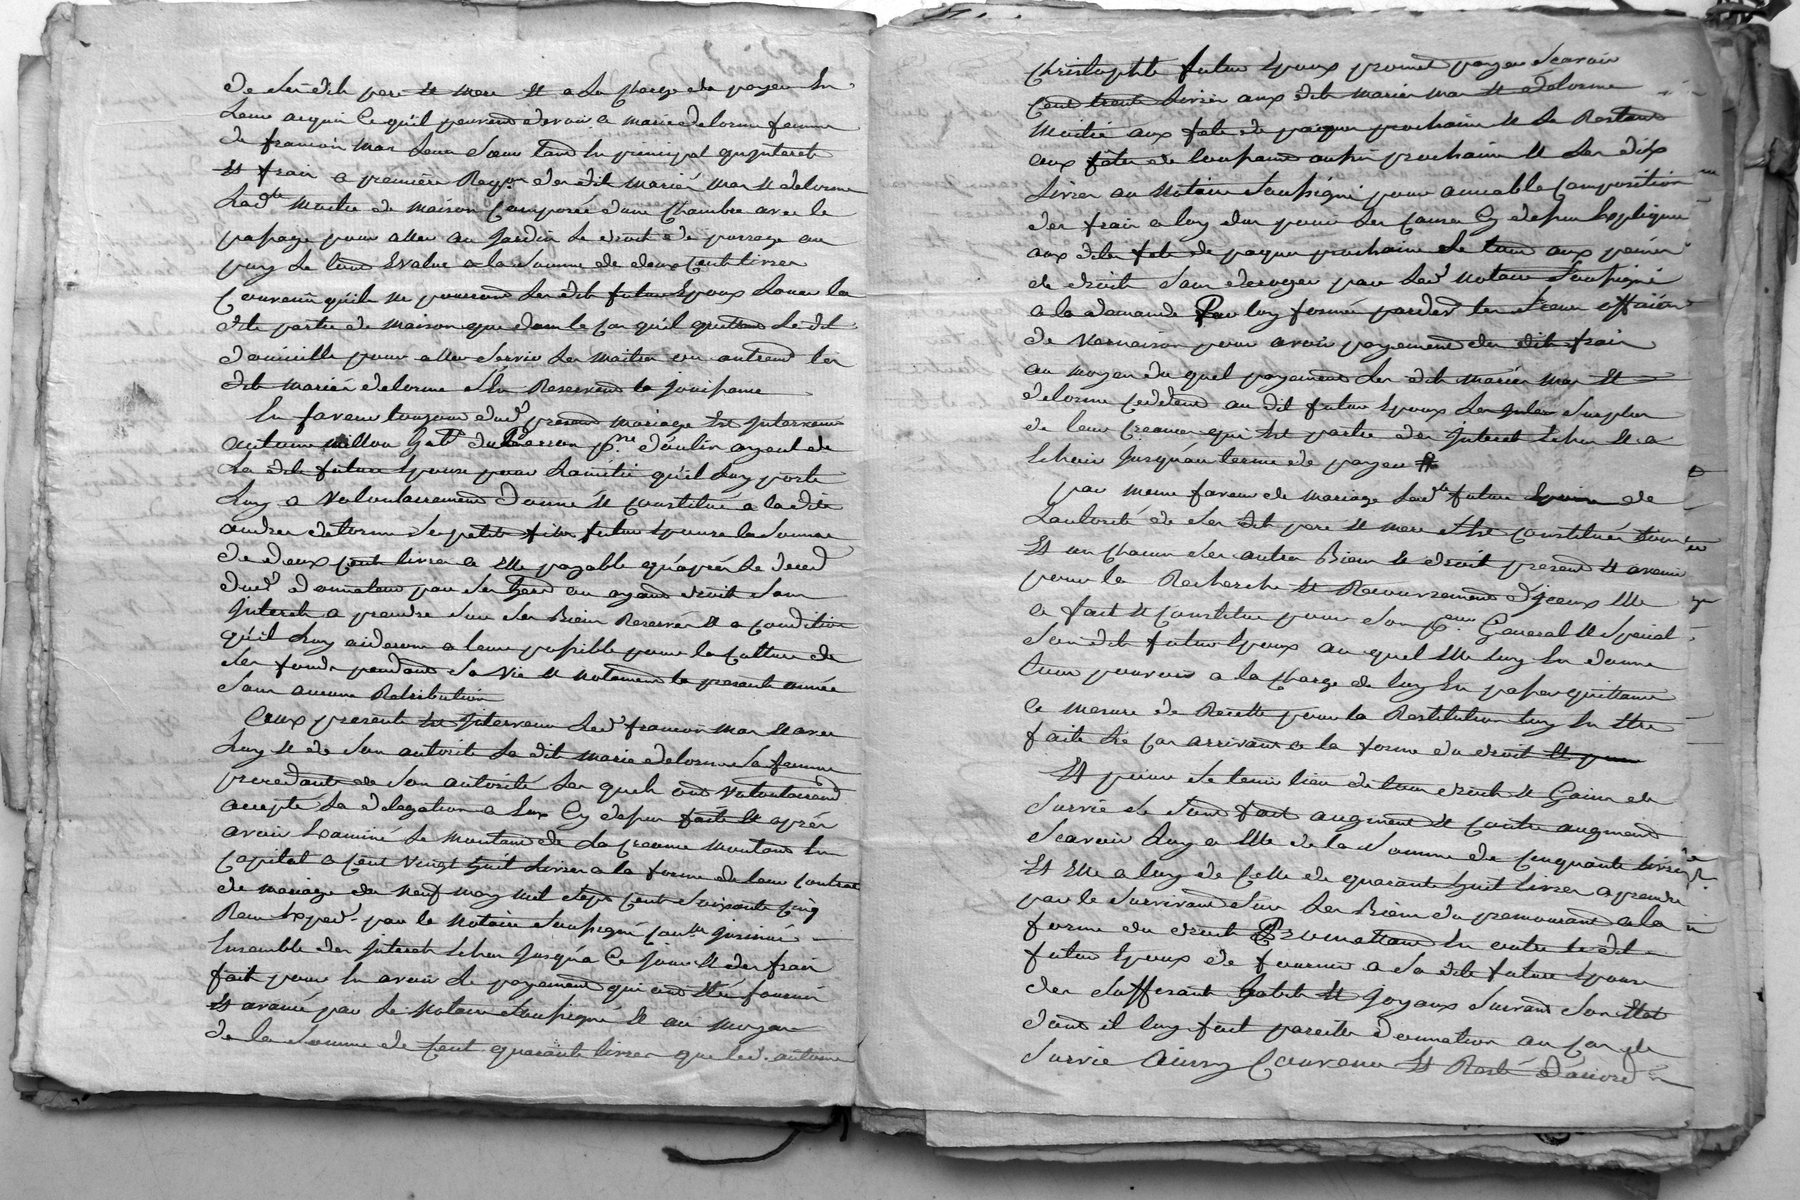 de Sesdit pere et mere et a la charge de payer en
Leur acquit ce qu'il peuvent devoir a marie delorme femme
de francois mas Leur Soeur tant en principal qu'interets
et frais a premiere Requon desdit mariés mas et delorme
Ladte moitie de maison Composée dune Chambre avec le
passage pour aller au Jardin Le droit de passage au
puy Le tout Evalue a la Somme de deux Cent livres
Convenu qu'ils ne pourront Lesdit futur Epoux Louer la
dite partie de maison que dans le Cas qu'il quittent Le dit
domicille pour aller Servir des maitres ou autrement les
dit mariés delorme S'En Reservent la jouissance
En faveur toujours dud present mariage Est Intervenu
antoine millon habt du psse d'oulin ayeul de
La dite future Epouse pour L'amitié qu'il Luy porte
Luy a Volontairement donné et Constitué a la dite
delorme Sa petite fille future Epouse la Somme
de deux Cent livres a Elle payable qu'après Le deces
dud donnateur par Ses hoirs ou ayant droit Sans
Interets a prendre Sur Ses Biens Reservés et a Condition
qu'il Luy aideront a leur possible pour la Culture de
Ses fonds pendant Sa Vie et notament la presente année
Sans aucune Retribution
Ceux presente Est Intervenu Led francois mas et avec
Luy et de Son autorité La dit marie delorme Sa femme
procedante de Son autorité Lesquels ont Volontairement
accepté La delegation a Eux Cy dessus faite et après
avoir Examiné Le montant de La Creance montant En
Capital a Cent Vingt huit Livres a la forme de leur Contrat
de mariage du neuf may mil Sept Cent Soixante Cinq
Reçu Exped. par le notaire Soussigné
Ensemble des Interets Echus Jusqu'a Ce jour et des frais
fait pour En avoir Le payement qui ont Eté fournis
Et avancé par Le Notaire Soussigné Et au moyen
de la Somme de Cent quarante livres que led. antoine
Christophle futur Epoux promet payer Scavoir
Cent trente Livres aux dit mariés mas et delorme
moitié aux fete de paques prochaine et Le Restant
aux fêtes de toussaint aussi prochaine et Les dix
Livres au notaire Soussigné pour amiable Composition
des frais a luy dus pour Les Causes Cy dessus Expliquées
aux dites fete de paques prochaine Le tout aux peines
de droit Sans deroger par Led notaire Soussigné
a la demande Par luy formée pardevt les Sieurs officiers
de Vernaison pour avoir payement du dit frais
au moyen du quel payement Les dit mariés mas et
delorme Cedent au dit futur Epoux Le Surplus
de leur Creance qui Est partie des Interets Echus et a
Echoir Jusqu'au terme de payer
par meme faveur de mariage Ladte future Epouse de
L'autorité de Ses dit pere et mere s'Est Constituée
Et un Chacun Ses autres Biens et droit present et avenir
pour la Recherche et Recouvrement d'iceux Elle
a fait et Constitue pour Son preur General et Special
Sondit futur Epoux au quel Elle luy En donne
tous pouvoir a la Charge de luy En passer quittance
a mesure de Recette pour la Restitution luy En Etre
faite Le Cas arrivant a la forme du droit
Et pour Se tenir lieu de tous droits et Gains de
Survie Se Sont fait augment et Contre augment
Scavoir Luy a Elle de la Somme de Cinquante livres
Et Elle a luy de Celle de quarante huit livres a prendre
par le Survivant Sur Les Biens du premourant a la
forme du droit Promettant En outre ledit
futur Epoux de fournir a Sa dite future Epouse
des Suffisant habits et Joyaux Suivant Son Etat
dont il luy fait pareille donnation au Cas de
Survie Ainsy Convenu Et Resté d'accord